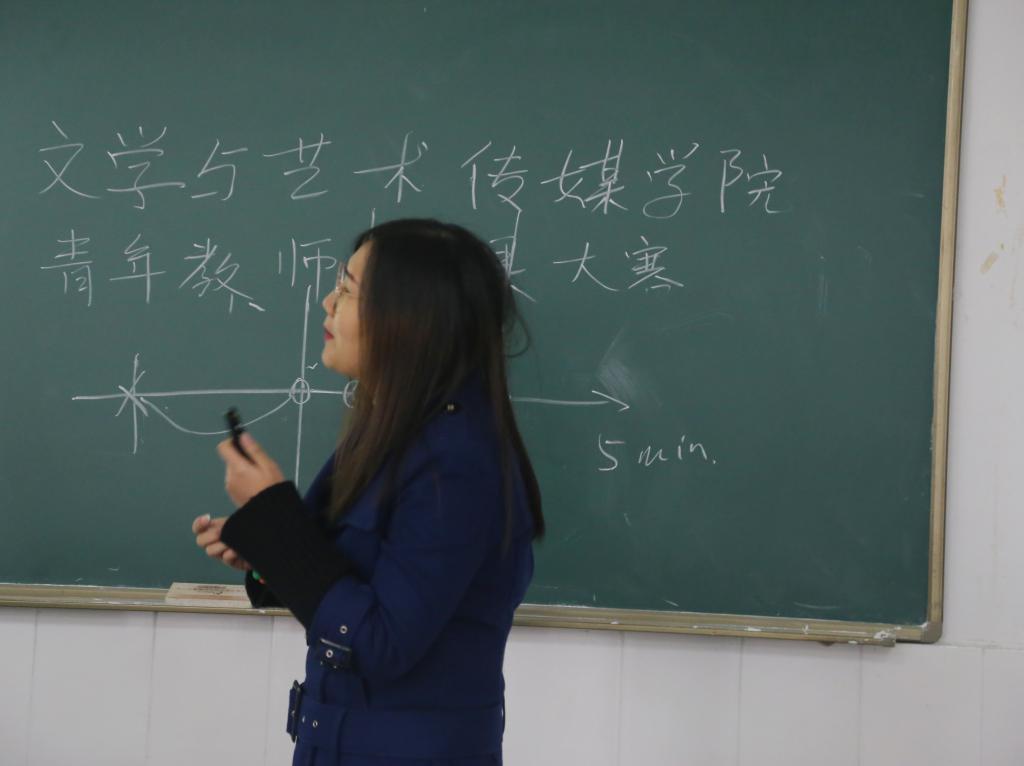 文学与艺术传媒学院
青年教师 大赛
5 min.